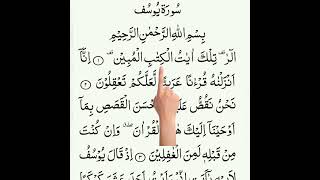 سُورَةُ يُوسُف
بِسْمِ اللهِ الرَّحْمٰنِ الرَّحِيْمِ
الٓرٰ ۚ تِلْكَ اٰيٰتُ الْكِتٰبِ الْمُبِيْنِ ۙ ١ اِنَّاۤ
اَنْزَلْنٰهُ قُرْءٰنًا عَرَبِيًّا لَّعَلَّكُمْ تَعْقِلُوْنَ ٢
نَحْنُ نَقُصُّ عَلَيْكَ اَحْسَنَ الْقَصَصِ بِمَاۤ
اَوْحَيْنَاۤ اِلَيْكَ الْقُرْاٰنَ ۖ وَاِنْ كُنْتَ
مِنْ قَبْلِهٖ لَمِنَ الْغٰفِلِيْنَ ٣ اِذْ قَالَ يُوْسُفُ